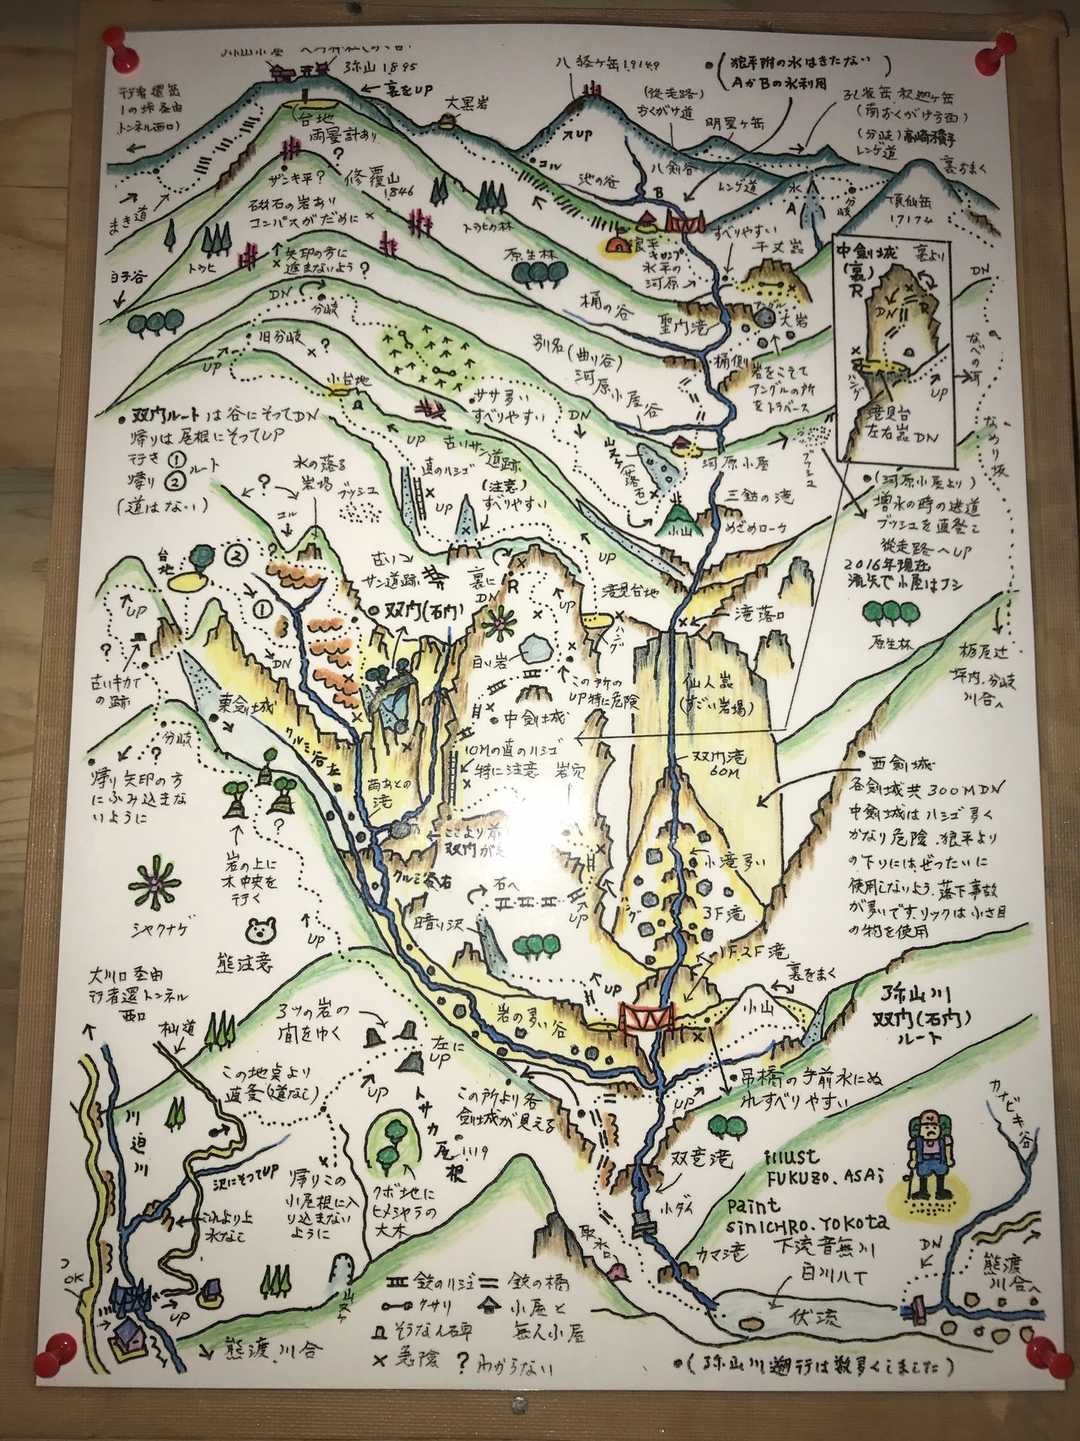 弥山 1895
裏をUP
大黒岩
八経ヶ岳 1914.9
(従走路)
おくがけ道
●(狼平附の水はきたない)
AかBの水利用
明星ヶ岳
(南おくがけ方面)
(分岐)高崎横手
レンゲ道
裏をまく
行者還岳
1の垰経由
トンネル西口)
(台地
雨量計あり
?
ザンキ平?
修覆山
1846
磁石の岩あり
コンパスがだめに
トウヒの林
UP
コル
池の谷
八剣谷
レンゲ道
水
A
B
分岐
頂仙岳
1717.4
まき道
白子谷
トウヒ
矢印の方に
進まないよう?
原生林
狼平
キャンプ
水平の
河原
すべりやすい
千丈嵓
アングル
大岩
中剣城
(裏)
R
裏より
DN
R
ハング
UP
滝見台
左右嵓DN
DN
なべの耳
なめり坂
DN
分岐
桶の谷
聖門滝
桶側
岩をこそて
アングルの所
をトラバース
旧分岐
×?
UP
小台地
別名(曲り谷)
河原小屋谷
ササ多い
すべりやすい
DN
古いサン道跡
UP
河原小屋
ブッシュ
●双門ルートは谷にそってDN
帰りは尾根にそってUP
行き①ルート
帰り②
(道はない)
水の落る
岩場
ブッシュ
コル
直のハシゴ
(注意)
すべりやすい
UP
(落石)
小山
三鈷の滝
めざめローケ
●(河原小屋より)
増水の時の逃道
ブッシュを直登し
従走路へUP
2016年現在
流失で小屋はナシ
原生林
台地
②
①
UP
?
DN
古い
サン道跡
●双門(石門)
裏に
DN
R
白い岩
滝見台地
ハング
この所の
UP特に危険
滝落口
仙人嵓
(すごい岩場)
栃尾辻
坪内.分岐
川合へ
古いキカイ
の跡
東剣城
分岐
?
帰り矢印の方
にふみ込まな
いように
クルミ谷左
雨あとの
滝
中剣城
10Mの直のハシゴ
特に注意
岩穴
双門滝
60M
●西剣城
各剣城共300MDN
中剣城はハシゴ多く
かなり危険.狼平より
の下りには,ぜったいに
使用しないよう.落下事故
が多いです.リックは小さ目
の物を使用
ここより
双門が
クルミ谷右
石へ
暗い沢
UP
小滝多い
3F滝
1F.2F滝
裏をまく
小山
岩の上に
木中央を
行く
シャクナゲ
熊注意
UP
弥山川
双門(石門)
ルート
大川口経由
行者還トンネル
西口
杣道
3ツの岩の
間をゆく
左に
UP
岩の多い谷
この地点より
直登(道なし)
UP
この所より各
剣城が見える
●吊橋の手前水にぬ
れすべりやすい
UP
トサカ尾根
1119
川迫川
沢にそってUP
これより上
水なし
帰りこの
小尾根に入
り込まない
ように
クボ地に
ヒメシャラの
大木
双竜滝
小ダム
取水口
カマ滝
illust
FUKUZO.ASAi
paint
SinICHRO.YOKOTA
下流音無川
白川八丁
伏流
カナビキ谷
DN
熊渡
川合へ
OK
UP
熊渡.川合
鉄のハシゴ
鉄の橋
クサリ
小屋と
無人小屋
そうなん碑
×危険
?わからない
●(弥山川遡行は数多くしました)